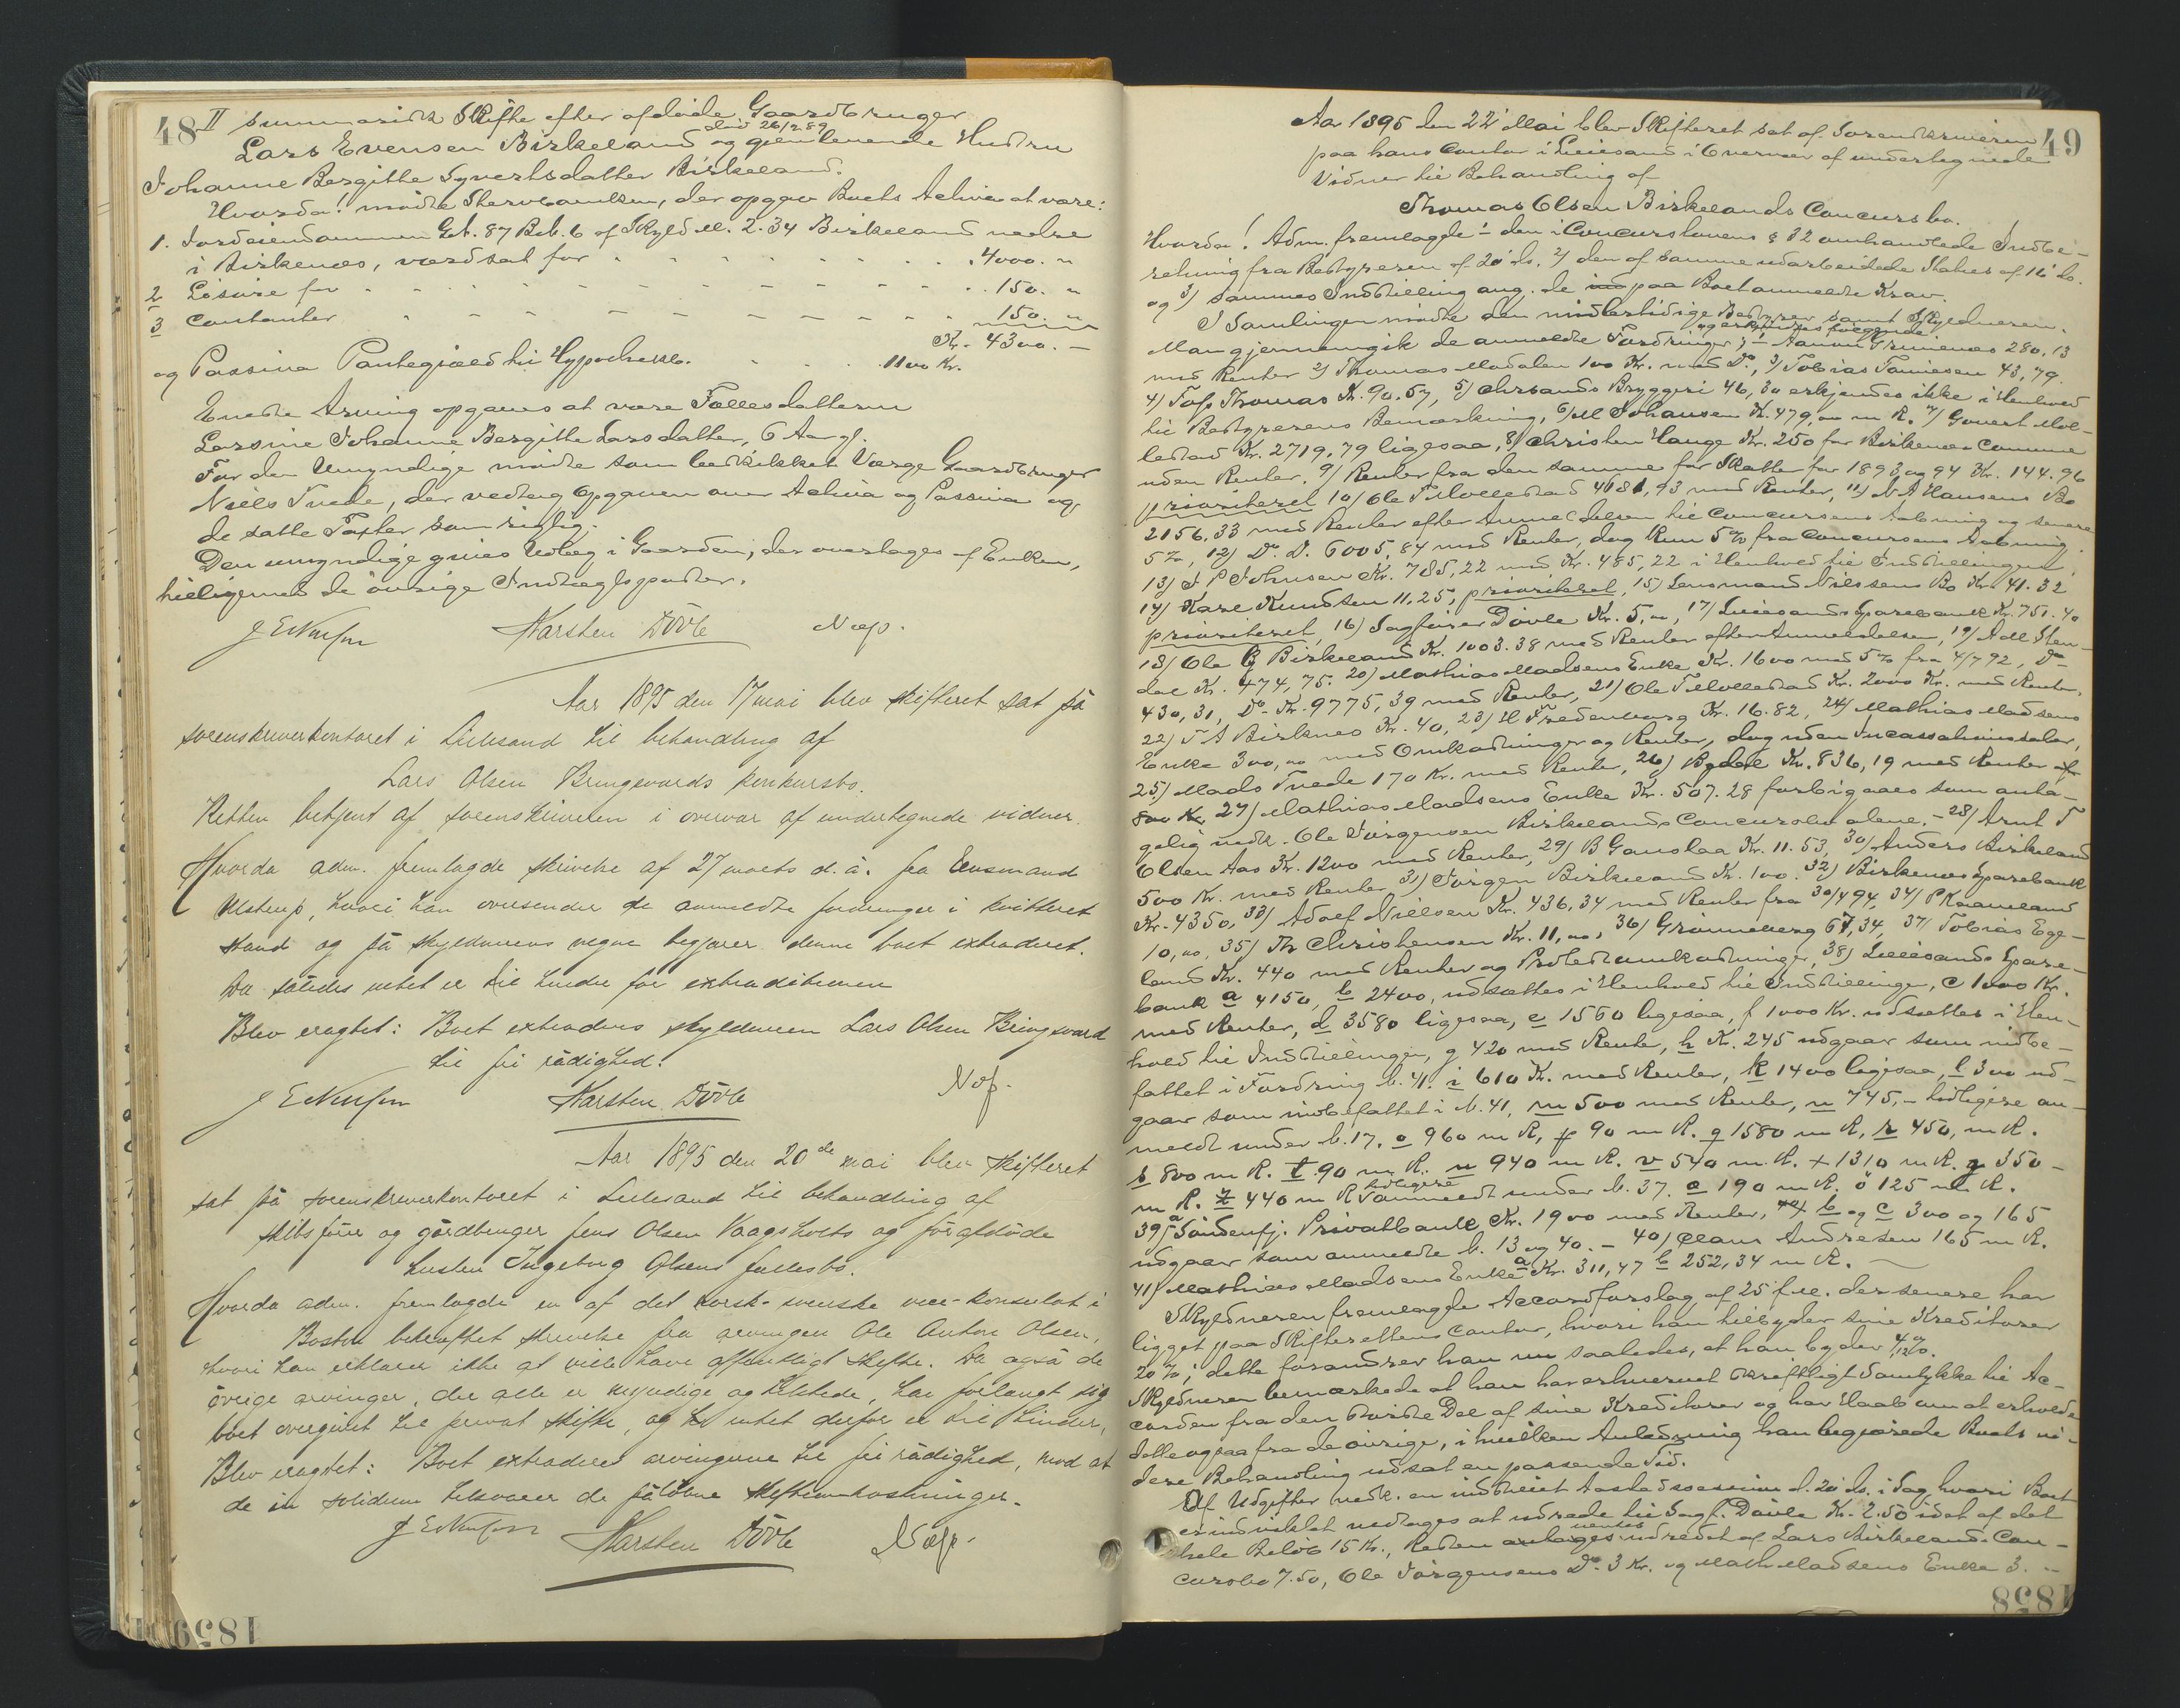 48
II summarisk Skifte efter afdøde Gaardbruger
død 26/2 89
Lars Evensen Birkeland og gjenlevende Hustru
Johanne Bergitte Syvertsdatter Birkeland.
Hvorda! mødte Stervboenken, der opgav Boets Activa at være:
1. Jordeiendommen Gt. 87 Bt. 6 af Skyld M. 2.34 Birkeland nedre
i Birkenæs, værdsat for - - - - - 4000. "
2 Løsøre for - - - - - 150. "
3 Contanter - - - - - 150. "
Kr. 4300. -
og Passiva Pantegjæld til Hypothekb. - - - 1100 Kr.
Eneste Arving opgaves at være Fællesdatteren
Larsine Johanne Bergitte Larsdatter, 6 Aar gl.
For den Umyndige mødte som beskikket Værge Gaardbruger
Niels Tvede, der vedtog Opgaven over Activa og Passiva og
de satte Taxter som rigtig.
Den umyndige gives Udlæg i Gaarden, der overtages af Enken,
tilligemed de øvrige Indtægtsposter.
Karsten Dövle
Aar 1895 den 17 mai blev skifteret sat på
sorenskriverkontoret i Lillesand til behandling af
Lars Olsen Bringsværds konkursbo.
Retten betjent af sorenskriveren i overvær af undertegnede vidner.
Hvorda adm. fremlagde skrivelse af 27 marts d. å. fra Lensmand
Ulstrup, hvori han oversender de anmeldte fordringer i kvitteret
stand og på skyldnerens vegne begjærer denne boet extraderet.
Da således intet er til hinder for extraditionen
Blev eragtet: Boet extraderes skyldneren Lars Olsen Bringsværd
til fri rådighed.
Karsten Dövle
Aar 1895 den 20de mai blev skifteret
sat på sorenskriverkontoret i Lillesand til behandling af
skibsfører og gårdbruger Jens Olsen Vaagsholts og førafdøde
hustru Ingeborg Olsens fællesbo.
Hvorda adm. fremlagde en af det norsk-svenske vice-konsulat i
Boston bekræftet skrivelse fra arvingen Ole Anton Olsen,
hvori han erklærer ikke at ville have offentligt skifte. Da også de
øvrige arvinger, der alle er myndige og tilstede, har forlangt sig
boet overgivet til privat skifte, og intet derfor er til hinder,
Blev eragtet: Boet extraderes arvingerne til fri rådighed, mod at
de in solidum tilsvarer de påløbne skifteomkostninger.
Karsten Dövle
1859
49
Aar 1895 den 22 Mai blev Skifteret sat af Sorenskriveren
paa hans Contor i Lillesand i Overvær af undertegnede
Vidner til Behandling af
Thomas Olsen Birkelands Concursbo.
Hvorda! Adm. fremlagde 1) den i Concurslovens § 32 omhandlede Indbe-
retning fra Bestyreren af 20 ds. 2) den af samme udarbeidede Status af 16 ds.
og 3) sammes Indstilling ang. de paa Boet anmeldte Krav.
I Samlingen mødte den midlertidige Bestyrer samt Skyldneren.
og erkjendtes følgende
Man gjennemgik de anmeldte Fordringer: 1) Aanon Grimenæs 280,13
med Renter 2) Thomas Modalen 100 Kr. med Do, 3) Tobias Tønnesen 43,79.
4) Thomas K. 90.57, 5) Chrsands Bryggeri 46,30 erkjendes ikke i Henhold
til Bestyrerens Bemærkning, 6) M Johansen K. 479,00 m R. 7) Govert Mol-
lestad Kr. 2719,79 ligesaa, 8) Christen Hauge Kr. 250 for Birkenæs Commune
uden Renter. 9) Renter fra den samme for Skatter for 1893 og 94 Kr. 144.96
prioriteret 10) Ole T Mollestad med Renter, 11) Hansens Bo
2156.33 med Renter efter Anmeldelsen til Concursens Aabning og senere
5%, 12) Do. D. 6005,84 med Renter, dog kun 5% fra Concursens Aabning.
13) J P Johnsen Kr. 785,22 med Kr. 485,22 i Henhold til Indstillingen,
14) Karl Knudsen 11.25, prioriteret, 15) Lensmand Nilssens Bo Kr. 41.32
prioriteret, 16) Sagfører Dövle Kr. 5,00, 17) Lillesands Sparebank Kr. 751.40
18) Ole G Birkeland Kr. 1003.38 med Renter efter Anmeldelsen, 19) Adl Sten-
dal Kr. 474,75. 20) Mathias Madsens Enke Kr. 1600 med 5% fra 4/7 92, Do
430,31, Do Kr. 9775,39 med Renter, 21) Ole T Mollestad Kr. 2000 Kr. med Renter,
22) T A Birknes Kr. 40, 23) H Fredenborg Kr. 16.82, 24) Mathias Madsens
Enke 300,00 med Omkostninger og Renter, dog uden Incassationssalær,
25) Mads Tvede 170 Kr. med Renter, 26) Bydal Kr. 836,19 med Renter af
800 Kr, 27) Mathias Madsens Enke Kr. 507.28 forbigaaes som anta-
gelig vedk. Ole Jörgensen Birkelands Concursbo alene. - 28) Arnt T
Olsen Aas Kr. 1200 med Renter, 29) B Gauslaa Kr. 11.53, 30) Anders Birkeland
500 Kr. med Renter 31) Jörgen Birkeland Kr. 100. 32) Birkenæs Sparebank
Kr. 4350, 33) Adolf Nielsen Kr. 436,34 med Renter fra 30/4 94, 34) P Kraneland
10,00, 35) Th Christensen Kr. 11,00, 36) Grönneberg 67,34, 37) Tobias Ege-
land Kr. 440 med Renter og Protestomkostninger, 38) Lillesands Spare-
bank a 4150, b 2400, udsættes i Henhold til Indstillingen, c 1000 Kr.
med Renter, d 3580 ligesaa, e 1560 ligesaa, f 1000 Kr. udsættes i Hen-
hold til Indstillingen, g 420 med Renter, h Kr. 245 udgaar som indbe-
fattet i Fordring b. 41. i 610 Kr. med Renter, k 1400 ligesaa, l 300 ud-
gaar som indbefattet i b. 41, m 500 med Renter, n 745,- tidligere an-
meldt under b. 17. o 960 m R, p 90 m R. q 1580 m R, r 450, m R.
s 800 m R. t 90 m R. u 940 m R. v 540 m R. x 1310 m R. y 350 -
m R. z 440 m R tidligere anmeldt under b. 37. æ 190 m R. ö 125 m R.
39) a Söndenfj. Privatbank Kr. 1900 med Renter, b og c 300 og 165
udgaar som anmeldt b. 13 og 40. - 40) Claus Andresen 165 m R.
41) Mathias Madsens Enke a Kr. 311,47 b 252,34 m R.
Skyldneren fremlagde Accordforslag af 25 f. M. der senere har
ligget paa Skifterettens Contor, hvori han tilbyder sine Kreditorer
20 %; dette forandrer han nu saaledes, at han byder
Skyldneren bemærkede at han har erhvervet skriftligt Samtykke til Ac-
corden fra den største Del af sine Kreditorer og har Haab om at erholde
dette ogsaa fra de øvrige, i hvilken Anledning han begjærede Boets vi-
dere Behandling udsat en passende Tid.
Af Udgifter vedk. en indstevnt Aastedssession d. 20 ds. i Sag hvori Boet
er indviklet vedtages at udrede til Sagf. Dövle Kr. 2.50 idet af det
hele Beløb 15 Kr., Resten ventes udredet af Lars Birkelands Con-
cursbo 7.50, Ole Jörgensens Do 3 Kr. og Math Madsens Enke 3. -
1858